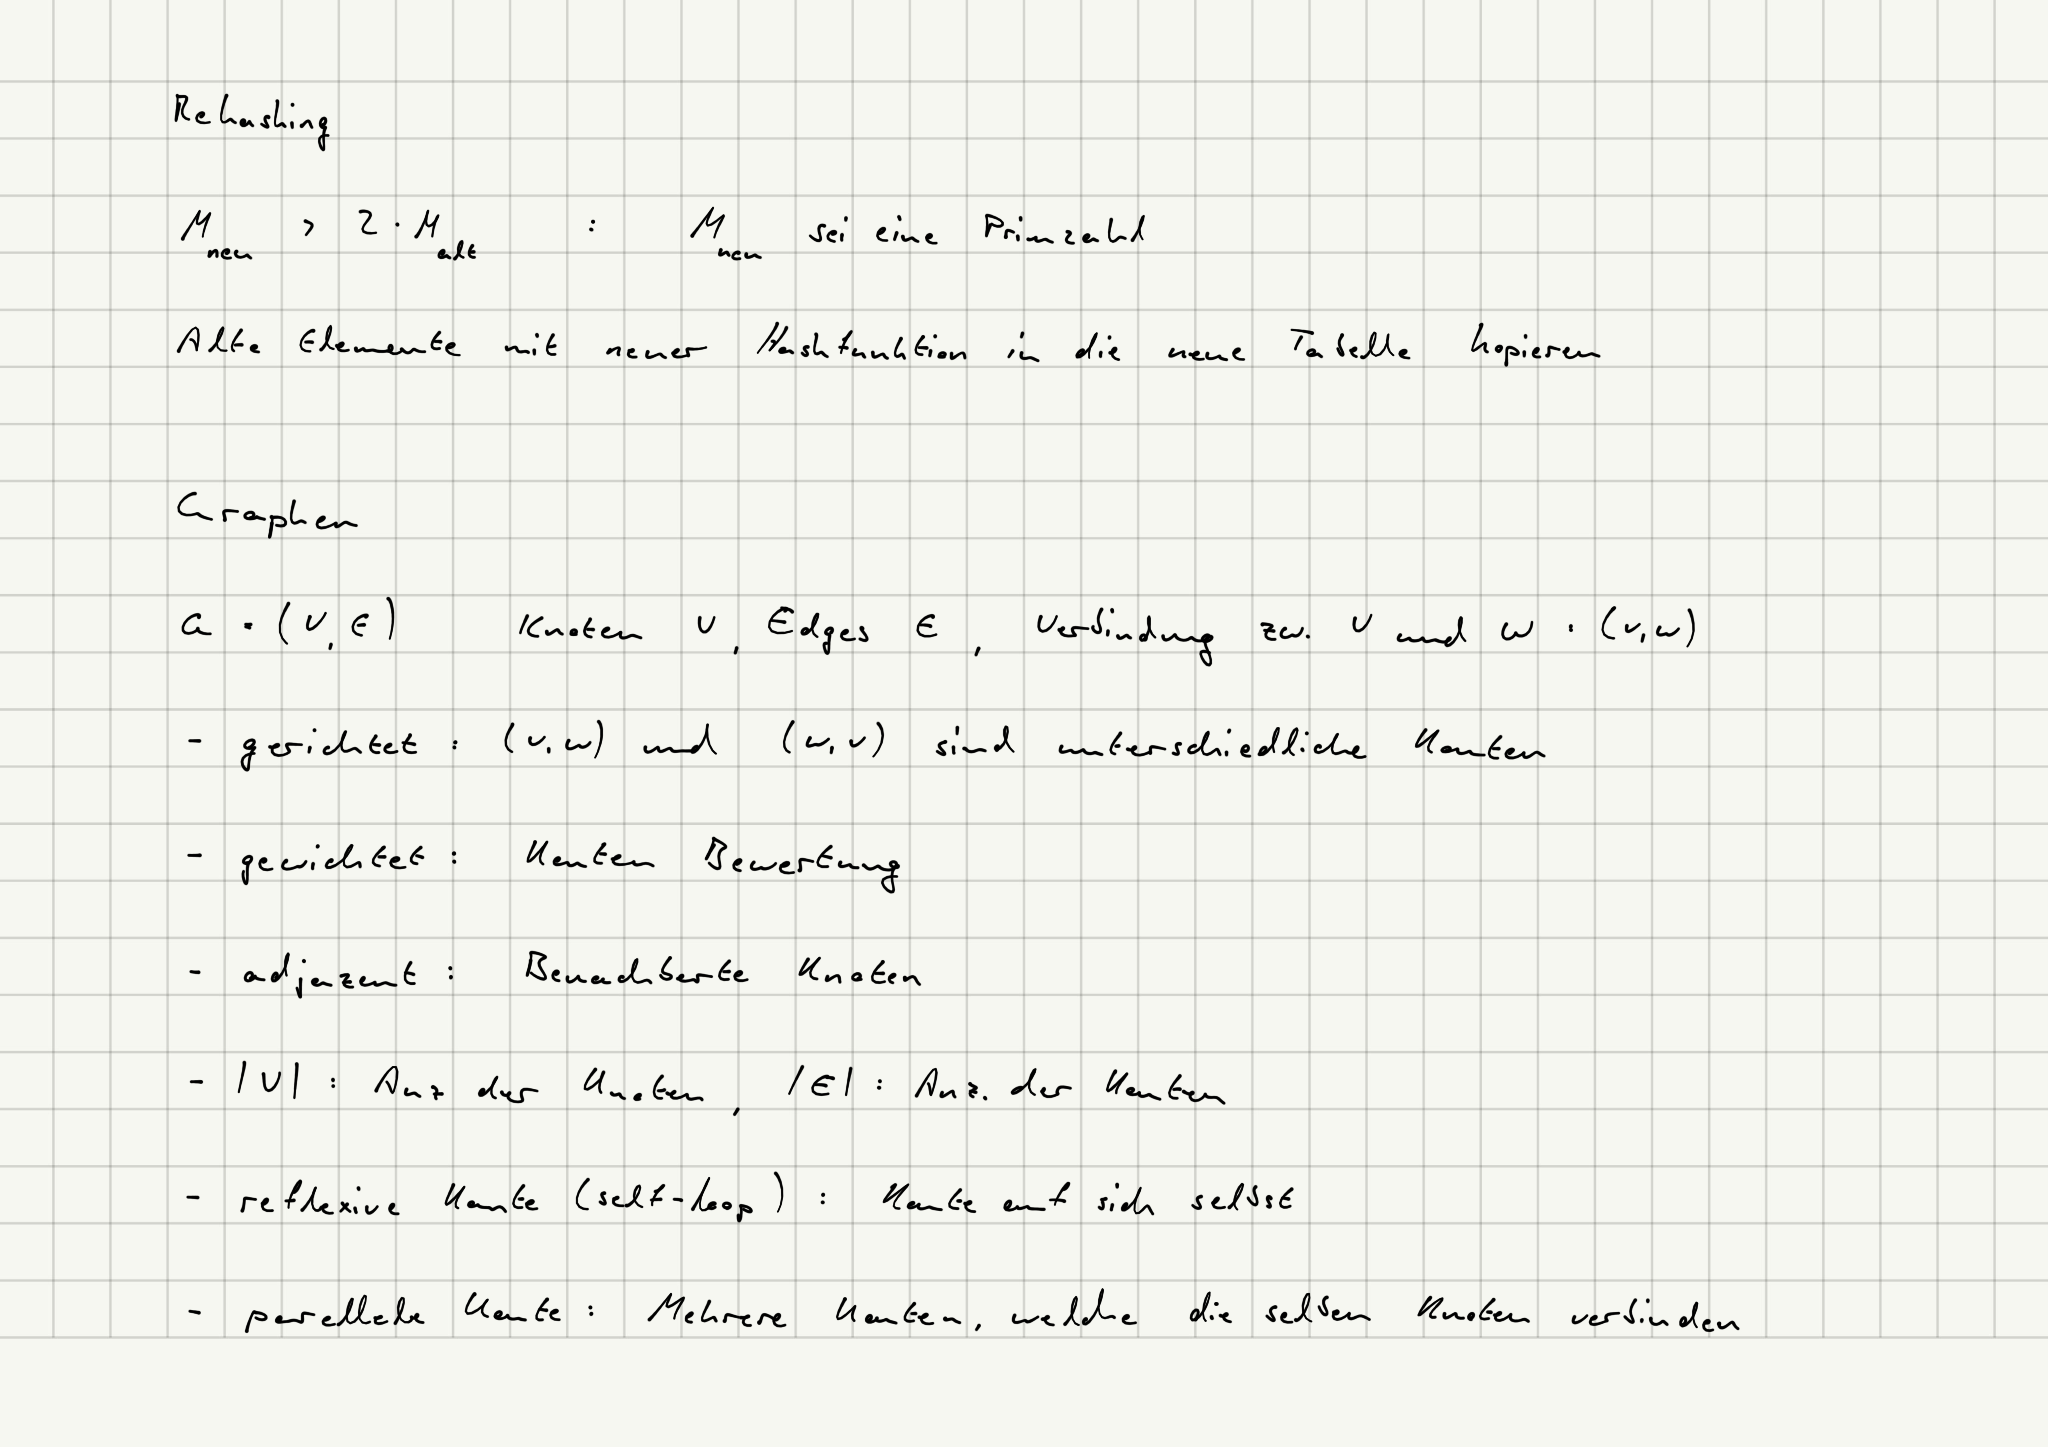 Rehashing
M_neu > 2 · M_alt : M_neu sei eine Primzahl
Alte Elemente mit neuer Hashfunktion in die neue Tabelle kopieren
Graphen
G = (V, E) Knoten V, Edges E, Verbindung zw. V und W : (v,w)
- gerichtet : (v,w) und (w,v) sind unterschiedliche Kanten
- gewichtet : Kanten Bewertung
- adjazent : Benachberte Knoten
- |V| : Anz der Knoten, |E| : Anz. der Kanten
- reflexive Kante (self-loop) : Kante auf sich selbst
- parellele Kante : Mehrere Kanten, welche die selben Knoten verbinden